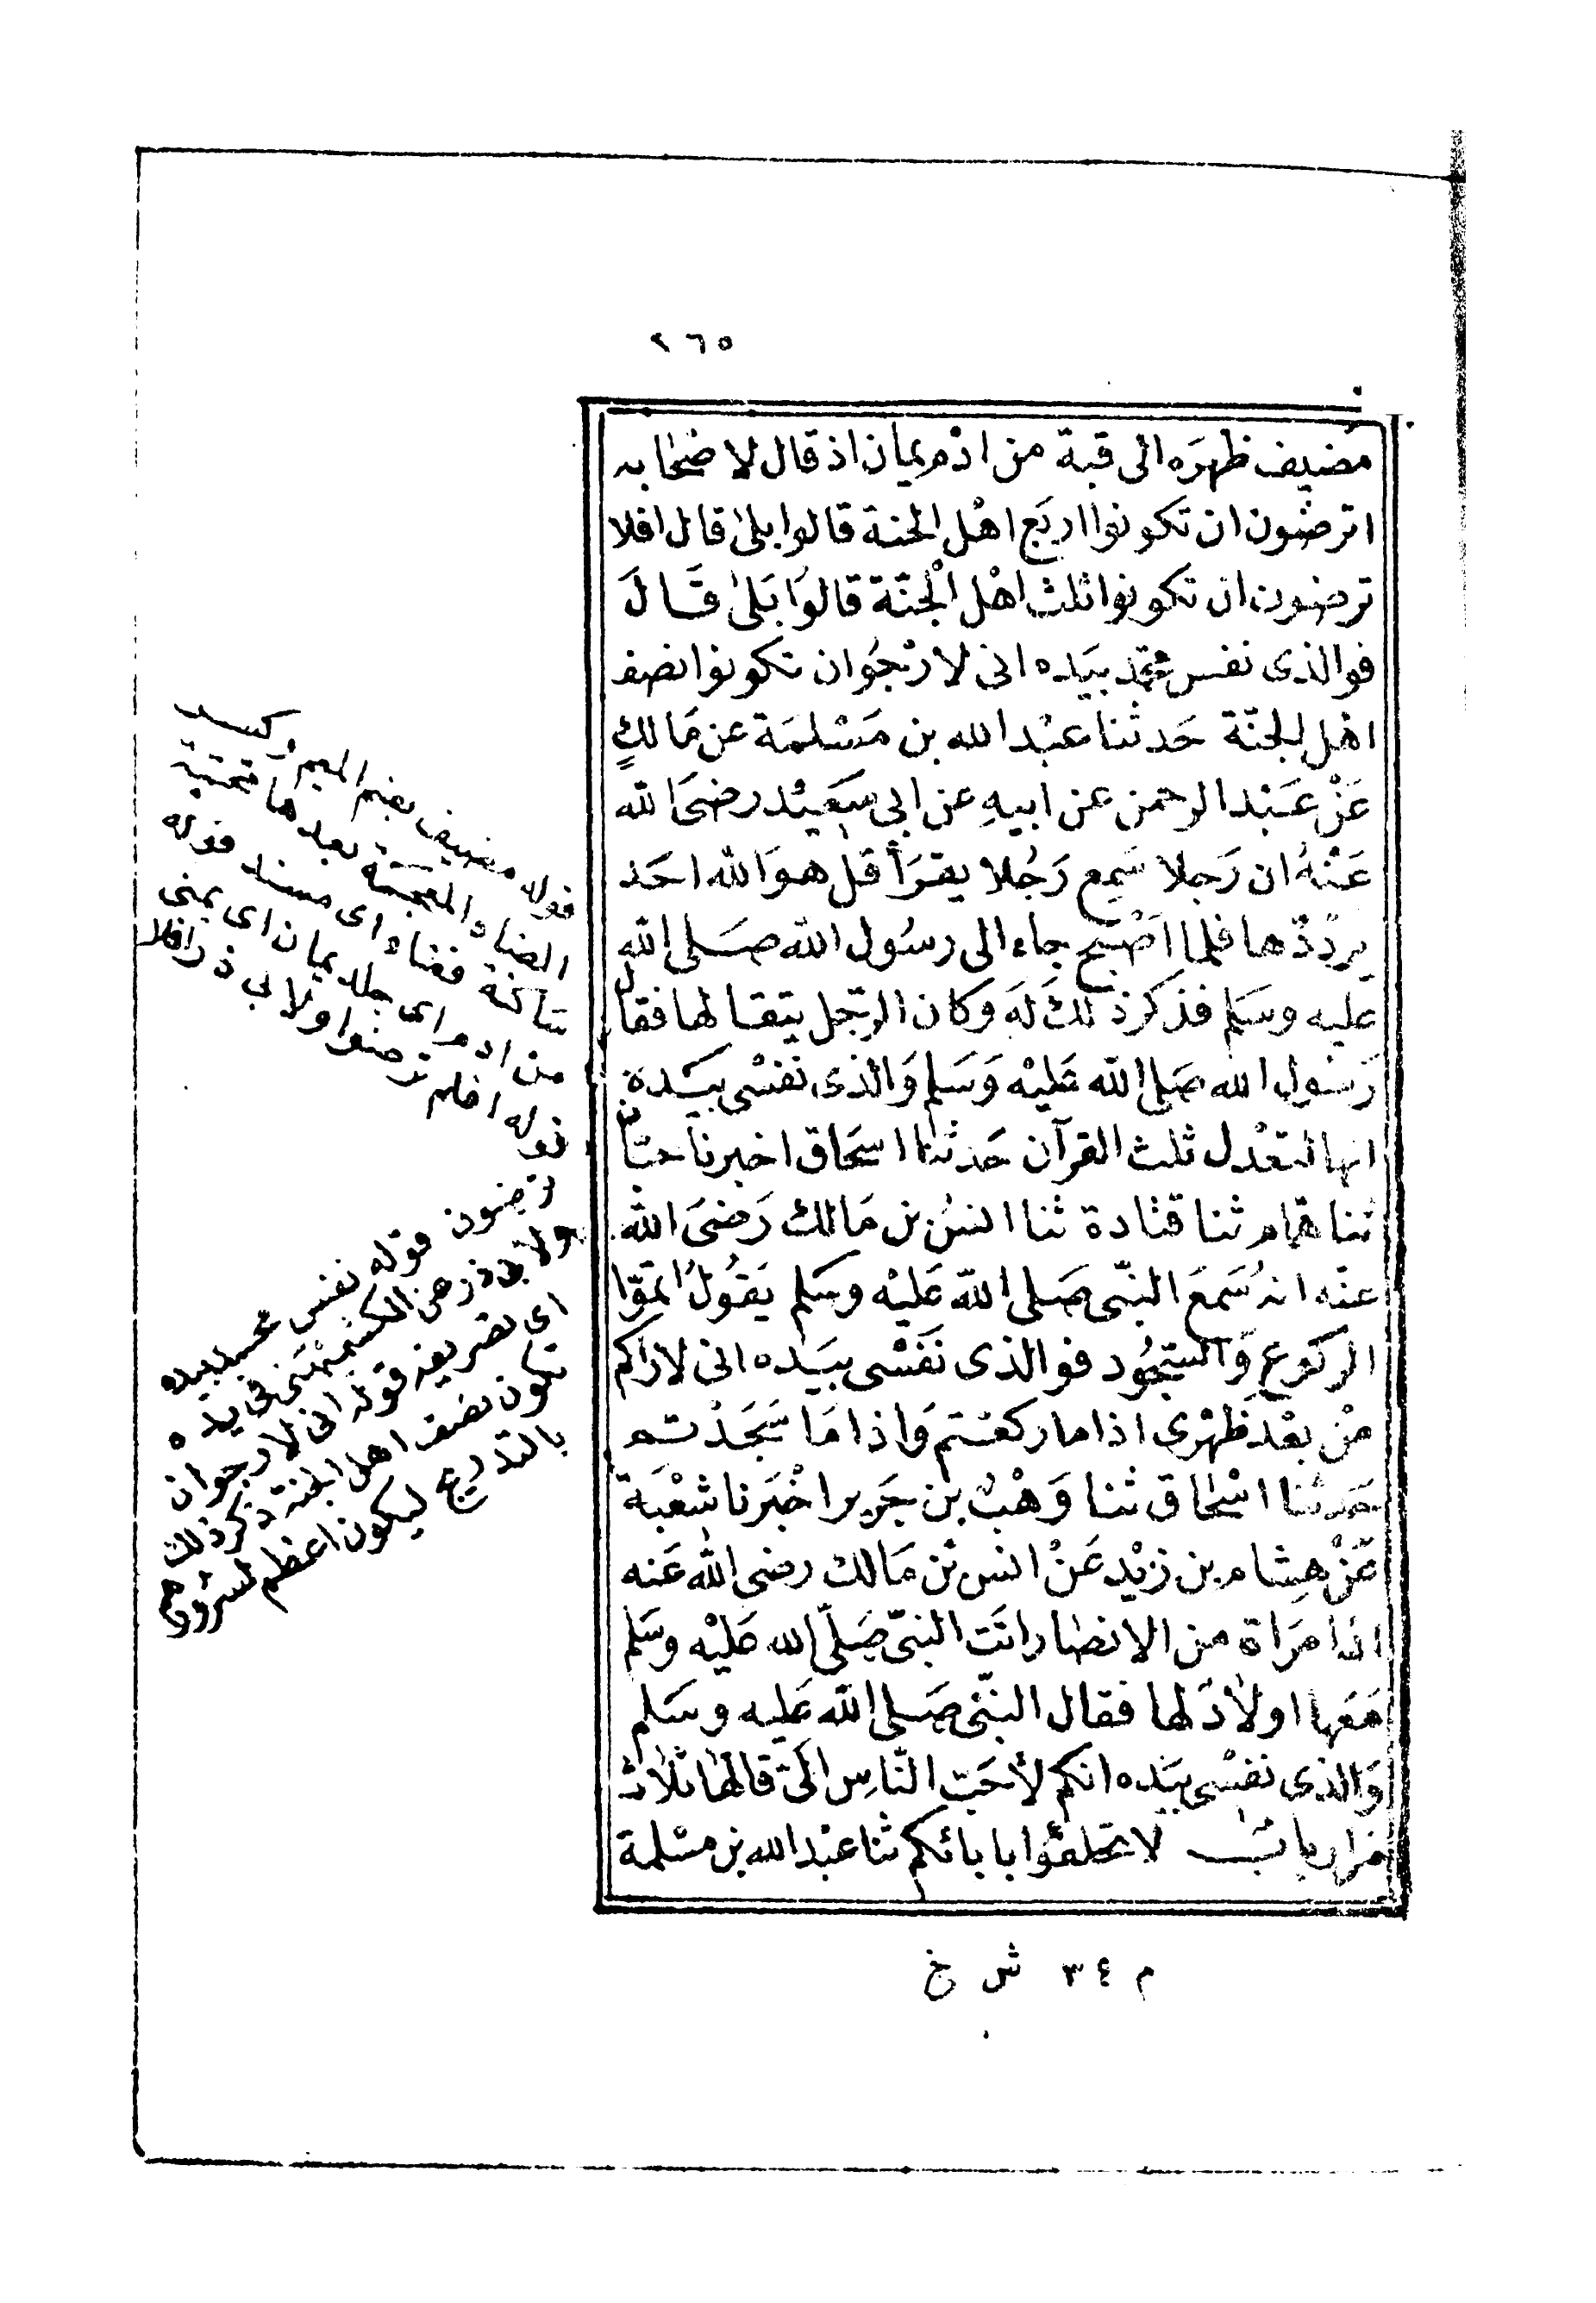 ٢٦٥
مُضيف ظهرَه الى قبة من ادم يمان اذ قال لاصحابه
اترضون ان تكونوا اربَع اهْل الجنة قالوا بلىٰ قال افلا
ترضون ان تكونوا ثلث اهْل الْجنّة قالوُا بَلىٰ قَالَ
فوالذى نفس محمّد بيَده انى لارْجُوان تكونوا نصف
اهْل الجنّة حَدثنا عبْد الله بن مَسْلمَة عن مَالكٍ
عَنْ عَبْد الرحمن عن ابيهِ عن ابى سَعيْد رضىَ الله
عَنْهُ ان رَجلا سَمِع رَجُلا يقرَأ قل هوَ الله احَد
يردّدُها فلما اصْبَح جاء الى رسُول الله صَلى الله
عليه وسَلم فذكر ذلكَ لَه وكان الرّجل يتقالها فقال
رَسُول الله صَلى الله عَليْه وَسَلم وَالذى نفسْى بيَده
انها لتعْدل ثلث القرآن حَدثنا اسحَاق اخبرنا حبّان
ثنا همّام ثنا قتادة ثنا انسُ بن مَالك رَضىَ الله
عنْه انهُ سَمعَ النبّى صَلى الله عَليْه وسَلم يَقوُلُ اتمّوا
الركوع وَالسّجُود فوالذى نَفسْى بيَده انى لاراكم
منْ بعْد ظهْرى اذا ما ركعْتم وَاذا مَا سَجَدْتم
حَدثنا اسْحٰاق ثنا وَهْبُ بن جَرير اخْبَرنا شعْبَة
عَنْ هِشام بن زيْد عَنْ انس بْن مَالك رضى الله عَنه
ان امرَاة من الانصار اتَت النبّى صَلىّ الله عَليْه وسَلم
مَعَها اولادٌ لها فقال النبّى صَلى الله عَليه وسَلم
وَالذى نفسْى بيَده انكم لأحَبّ النّاسِ الَىّ قالهَا ثلاث
مرار بابٌ لا تحلفُوا بابائكم ثنا عبْد الله بن مسْلمة
قوله مضيف بضم الميم وكسر
الضاد المعجمة بعدها تحتية
ساكنة ففاء اى مسند قوله
من ادم اى جلد يمان اى يمنى
قوله افلم ترضوا ولابى ذر افلا
ترضون قوله نفس محمد بيده
ولابى ذر عن الكشميهنى فى يده
اى تصريفه قوله انى لارجوان
تكون نصف اهل الجنة ذكر ذلك
بالتدريج ليكون اعظم لسرورهم
م ٣٤ ش خ